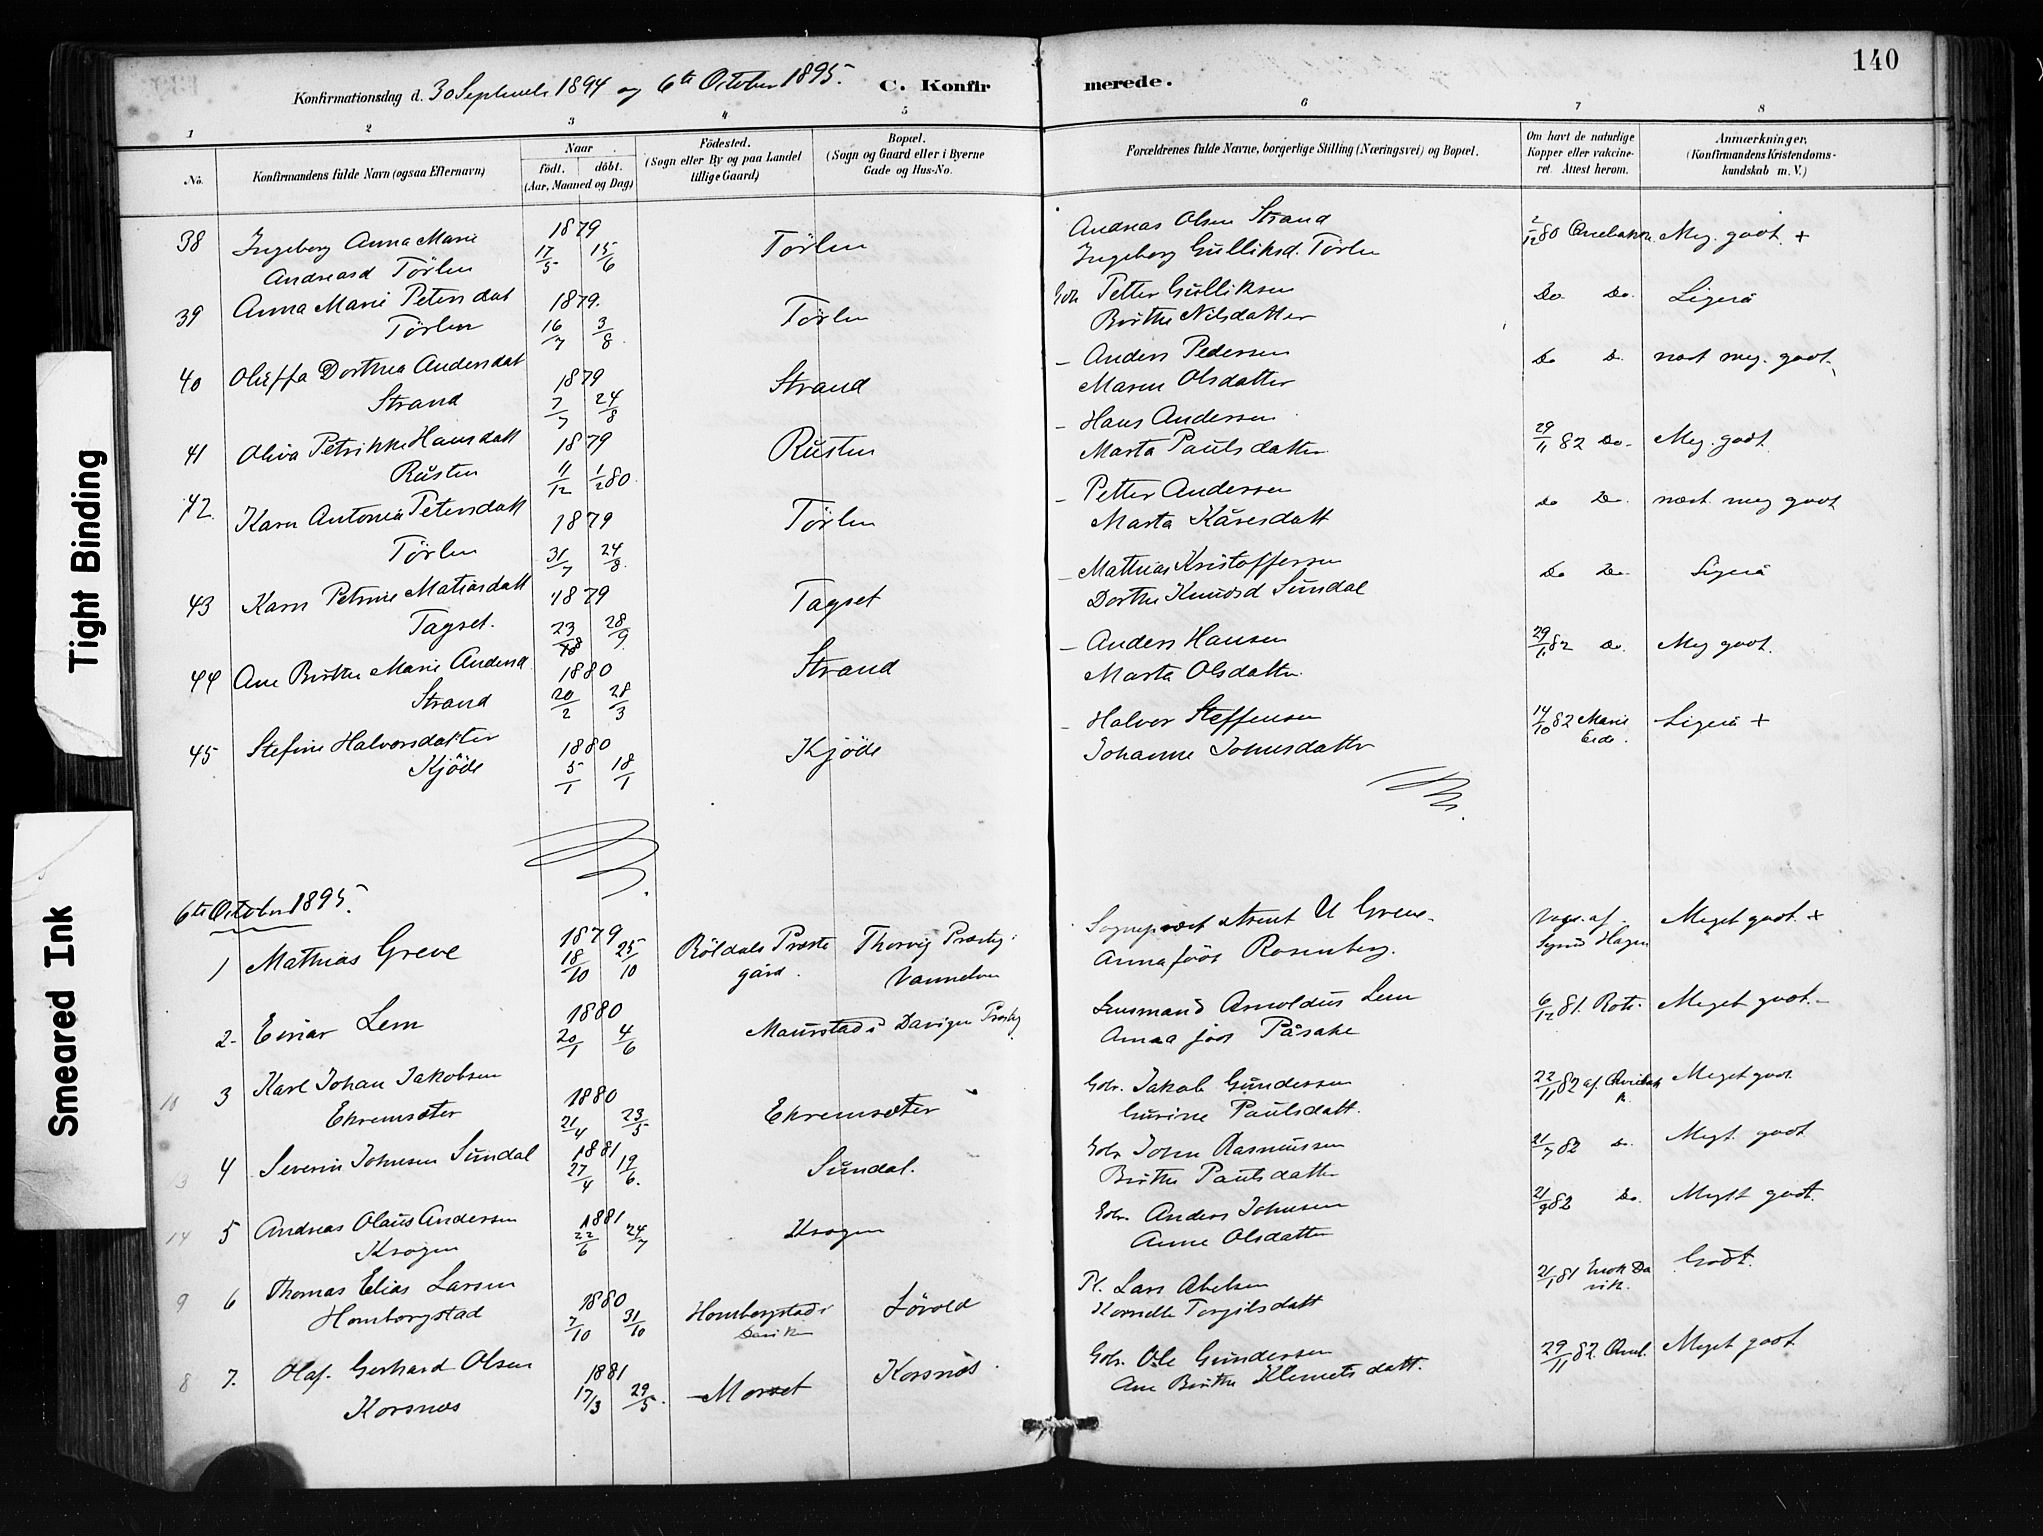 140
Konfirmationsdag d. 30 September 1894 og 6te October 1895. C. Konfir merede.
1 2 3 4 5 6 7 8
No. Konfirmandens fulde Navn (ogsaa Efternavn) Naar födt. döbt. (Aar, Maaned og Dag)
Födested. (Sogn eller By og paa Landet tillige Gaard)
Bopæl. (Sogn og Gaard eller i Byerne Gade og Hus-No.
Forældrenes fulde Navne, borgerlige Stilling (Næringsvei) og Bopæl.
Om havt de naturlige Kopper eller vakcineret. Attest herom.
Anmærkninger, (Konfirmandens Kristendomskundskab m. V.)
38 Ingeborg Anna Marie 1879 Törlen Andreas Olsen Strand 80 Meg. godt. +
Andreasd Törlen 17/5 15/6 Ingeborg Gulliksd. Törlen
39 Anna Marie Petersdat 1879. Törlen Petter Gulliksen Do Do. Ligeså
Törlen 16/7 3/8 Birthe Nilsdatter
40 Oleffa Dorthea Andersdat 1879 Strand - Anders Pedersen Do D. næst meg. godt.
Strand 7/7 24/8 Maren Olsdatter
41 Oliva Petrikke Hansdatt 1879 Rusten - Hans Andersen 29/11 82 Do. Meg. godt.
Rusten 11/12 1/2 80. Marta Paulsdatter
42. Karn Antonia Petersdatt 1879 Törlen - Petter Andersen Do Do. næst meg godt
Törlen 31/7 24/8. Marta Kåresdatt
43 Karn Petrine Matiasdatt 1879 Tagset - Mathias Kristoffersen Do Do Ligeså
Tagset. 23/8 28/9. Dorthe Knudsd Sundal
44 Ane Birthe Marie Andersd. 1880 Strand - Anders Hansen 29/11 82 Do. Meg godt.
Strand 20/2 28/3 Marta Olsdatter
45 Stefine Halvorsdatter 1880 Kjöde - Halvor Steffensen 14/10 82 Marie Eide. Ligeså +
Kjöde 5/1 18/1 Johanne Johnsdatter
6te October 1895.
1 Mathias Greve 1879 18/10 25/10 Röldals Præstegård. Thorvig Præstg: Vannelven Sogneprest Arent U Greve. Vacc. af Meget godt. +
Anna föd Rosenberg. Hagen
2. Einar Lem 1880 20/1 4/6 Maurstad i Davigen Præstg. Lensmand Arnoldus Lem 6/12 81. Meget godt.
Anna föd Påsake
3 Karl Johan Jakobsen 1880 Ekremsæter Gbr. Jakob Gundersen 22/11 82 af Meget godt
10 Ekremsæter 21/4 23/5 Gurine Paulsdatt.
3 4 Severin Johnsen Sundal 1881 27/4 19/6. Sundal. Gbr John Rasmussen 21/7 82 D. Megt. godt
Birthe Paulsdatter
14 5 Andreas Olaus Andersen 1881 22/6 24/7 Krogen Gbr. Anders Johnsen 21/9 82 Do. Megtt godt.
Krogen Anne Olsdatter
9 6 Thomas Elias Larsen 1880 Homborgstad i Davik Lövold Pl. Lars Abelsen 21/1 81 Davik. Godt.
Homborgstad 7/10 31/10 Kornelle Torgilsdatt
8 7. Olaf. Gerhard Olsen 1881 Morset Korsnæs Gbr. Ole Gundersen 29/11 82. Meget godt.
Korsnæs 17/3 29/5. Ane Birthe Klemetsdatt.
Tight Binding
Smeared Ink